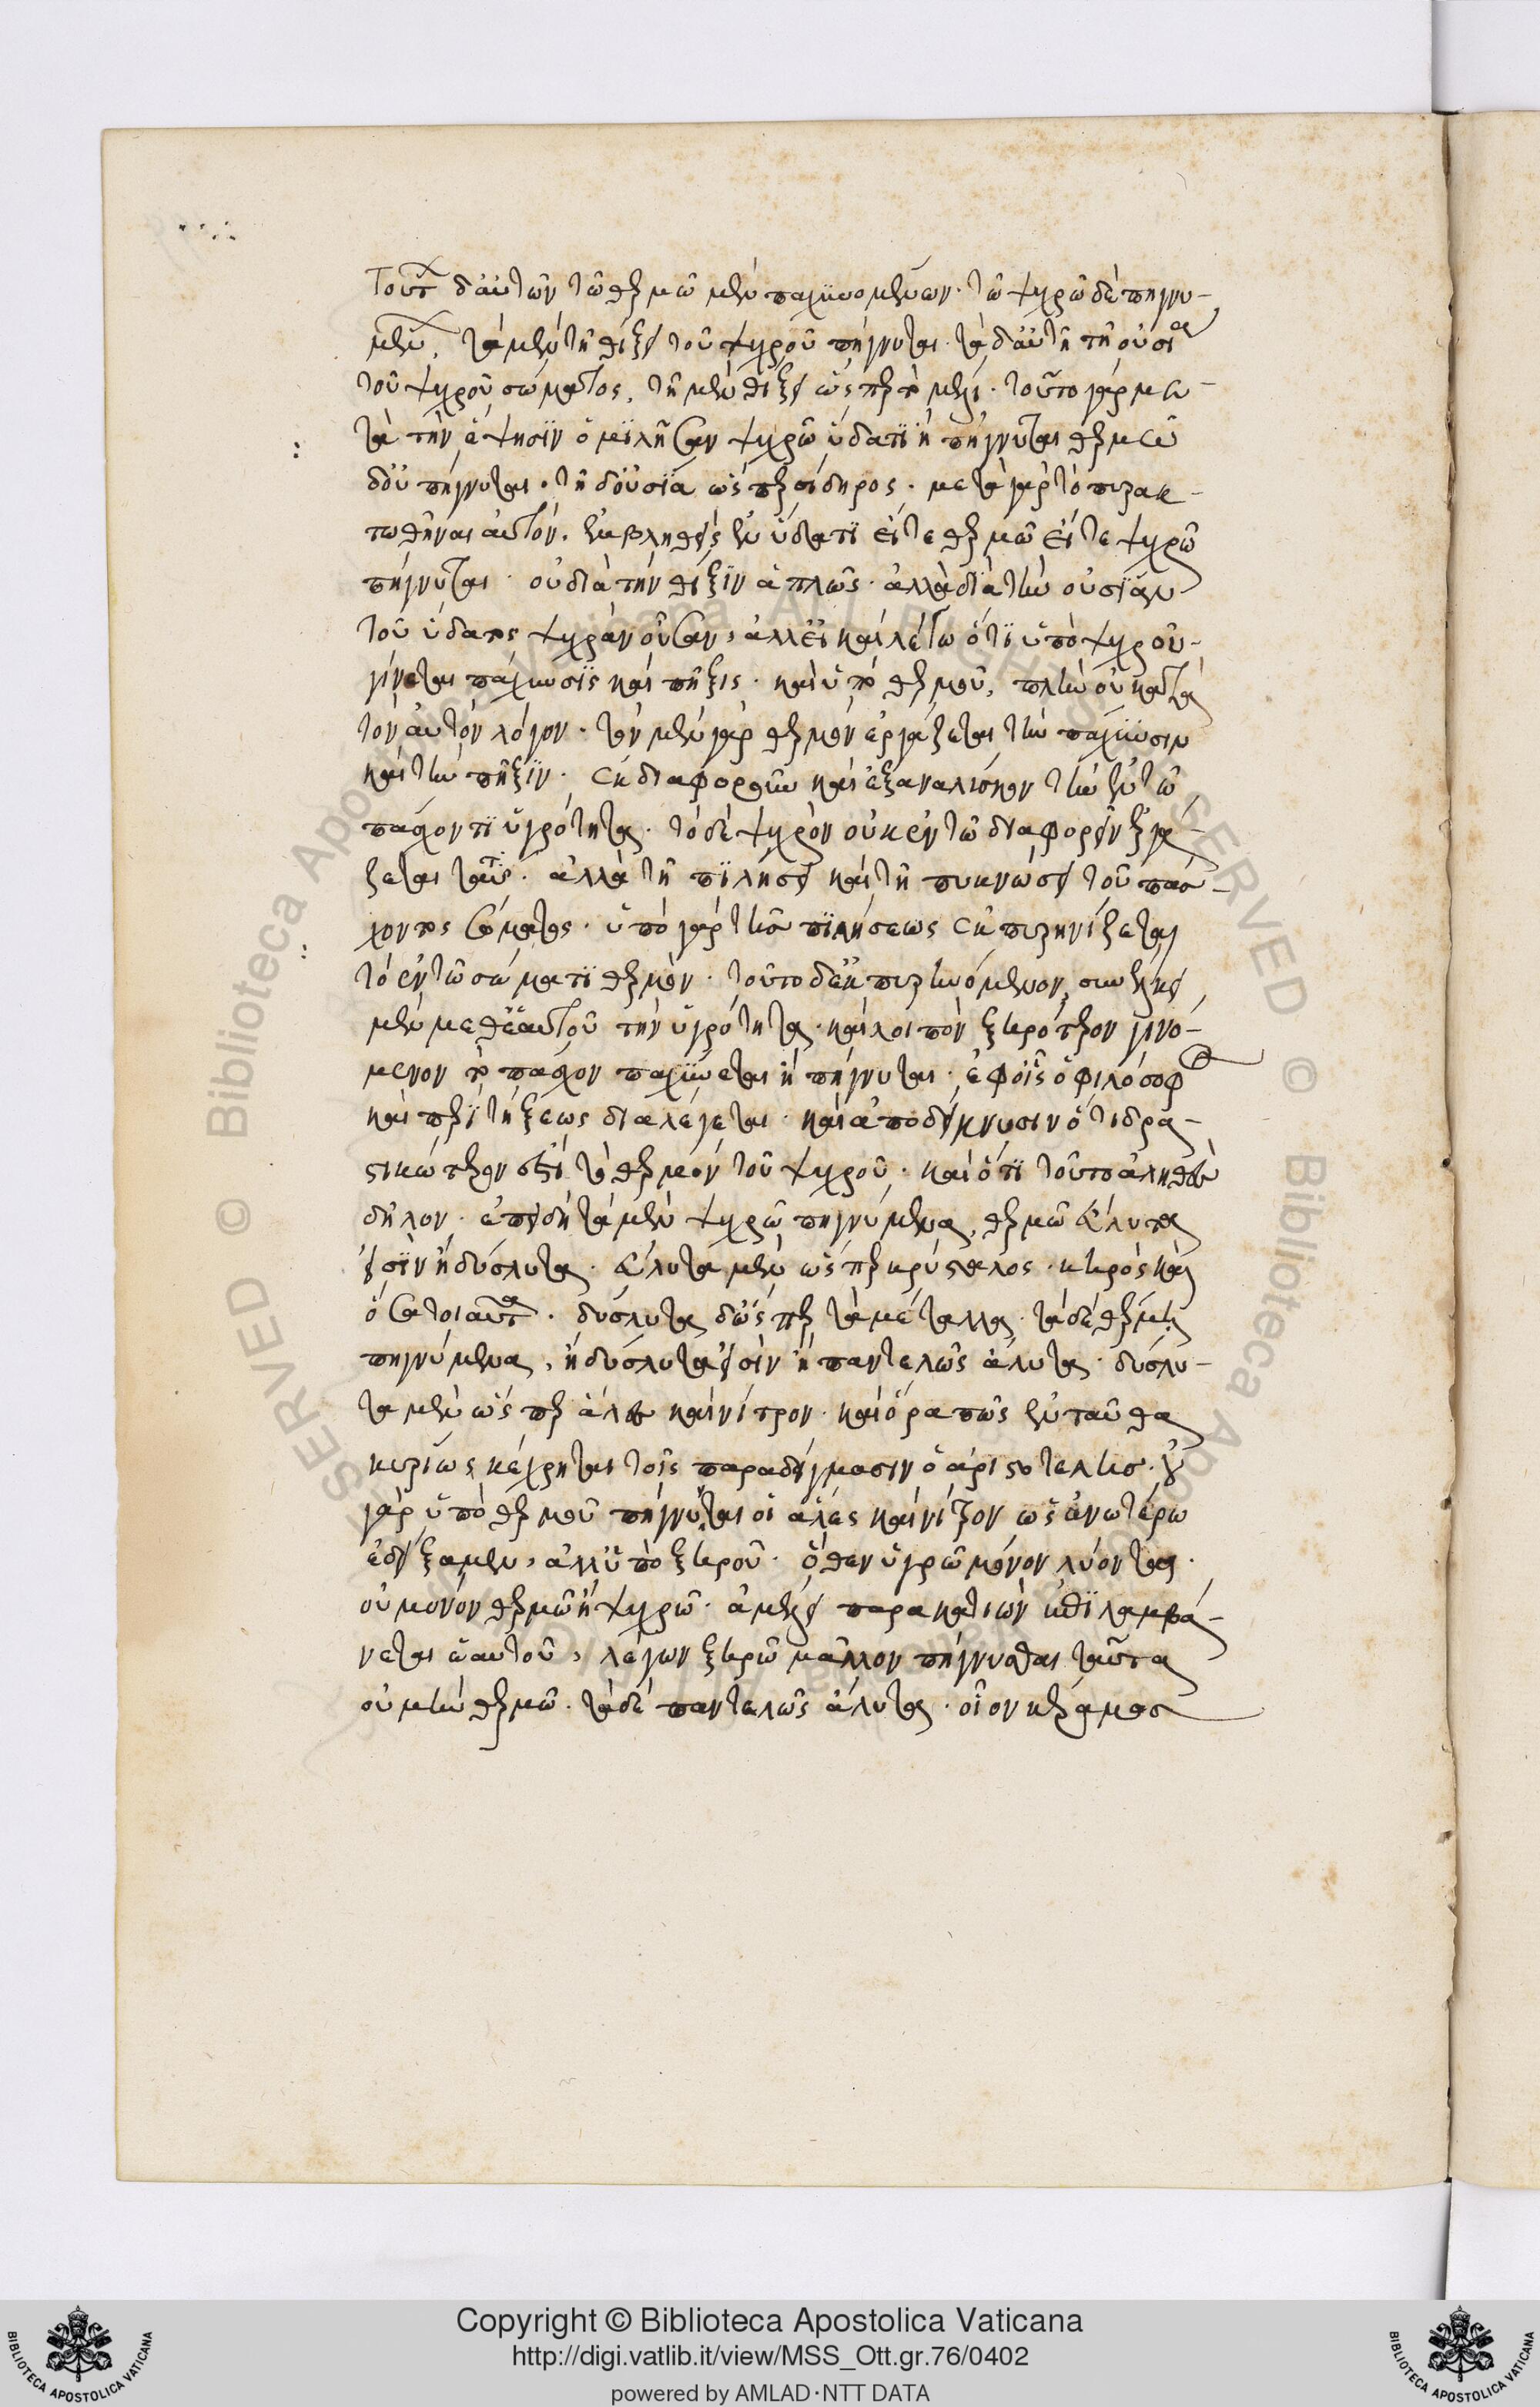 τούτων δ' αὐτῶν τῶ θερμῶ μὲν παχυνομένων· τῶ ψυχρῶ δὲ πηγνυ-
μένων, τὰ μὲν τῆ θίξει τοῦ ψυχροῦ πήγνυται· τὰ δ' αὐτῆ τῆ οὐσία
τοῦ ψυχροῦ σώματος, τῆ μὲν θίξει ὥσπερ τὸ μέλι· τοῦτο γὰρ με-
τὰ τὴν ἕψησιν ὁμιλῆσαν ψυχρῶ ὕδατι ἢ πήγνυται θερμῶ
δ' οὐ πήγνυται· τῆ δ' οὐσία ὥσπερ σίδηρος· μετὰ γὰρ τὸ πυρακ-
τωθῆναι αὐτὸν. ἐμβληθεὶς ἐν ὕδατι εἴτε θερμῶ εἴτε ψυχρῶ
πήγνυται· οὐ διὰ τὴν θίξιν ἁπλῶς· ἀλλὰ διὰ τὴν οὐσίαν
τοῦ ὕδατος ψυχρὰν οὖσαν, ἀλλ' εἰ καὶ λέγω ὅτι ὑπὸ ψυχροῦ
γίνεται πάχυνσις καὶ πῆξις· καὶ ὑπὸ θερμοῦ, πλὴν οὐ κατὰ
τὸν αὐτὸν λόγον· τὸ μὲν γὰρ θερμὸν ἐργάζεται τὴν πάχυνσιν
καὶ τὴν πῆξιν· ἐκδιαφοροῦν καὶ ἐξαναλίσκον τὴν ἐν τῶ
πάσχοντι ὑγρότητα· τὸ δὲ ψυχρὸν οὐκ ἐν τῶ διαφορεῖν ἐργά-
ζεται ταῦτα· ἀλλὰ τῆ πιλήσει καὶ τῆ πυκνώσει τοῦ πάσ-
χοντος σώματος· ὑπὸ γὰρ τῆς πιλήσεως ἐκπυρηνίζεται
τὸ ἐν τῶ σώματι θερμὸν· τοῦτο δ' ἐκπυρηνούμενον, συνέλκει
μὲν μεθ' ἑαυτοῦ τὴν ὑγρότητα· καὶ λοιπὸν ξηρότερον γινό-
μενον τὸ πάσχον παχύνεται ἢ πήγνυται· ἐφ' οἷς ὁ φιλόσοφος
καὶ περὶ τήξεως διαλέγεται· καὶ ἀποδείκνυσιν ὅτι δρα-
στικώτερον ἐστὶ τὸ θερμὸν τοῦ ψυχροῦ· καὶ ὅτι τοῦτο ἀληθὲς
δῆλον· ἐπειδὴ τὰ μὲν ψυχρῶ πηγνύμενα, θερμῶ εὔλυτα
εἰσὶν ἢ δύσλυτα· εὔλυτα μὲν ὥσπερ κρύσταλος· κηρὸς καὶ
ὅσα τοιαῦτα· δύσλυτα δ' ὥσπερ τὰ μέταλλα· τὰ δὲ θερμῶ
πηγνύμενα, ἢ δύσλυτα εἰσὶν ἢ παντελῶς ἄλυτα· δύσλυ-
τα μὲν ὥσπερ ἅλες καὶ νίτρον· καὶ ὅρα πῶς ἐνταῦθα
κυρίως κέχρηται τοῖς παραδείγμασιν ὁ ἀριστοτέλης· οὐ
γὰρ ὑπὸ θερμοῦ πήγνυται οἱ ἅλες καὶ νίτρον ὡς ἀνωτέρω
ἐδείξαμεν, ἀλλ' ὑπὸ ξηροῦ· ὅθεν ὑγρῶ μόνον λύονται·
οὐ μόνον θερμῶ ἢ ψυχρῶ· ἀμέλει παρακατιὼν ἐπιλαμβά-
νεται ἑαυτοῦ, λέγων ξηρῶ μᾶλλον πήγνυσθαι ταῦτα
οὐ μὴν θερμῶ· τὰ δὲ παντελῶς ἄλυτα· οἷον κέραμος
Copyright © Biblioteca Apostolica Vaticana
http://digi.vatlib.it/view/MSS_Ott.gr.76/0402
powered by AMLAD·NTT DATA